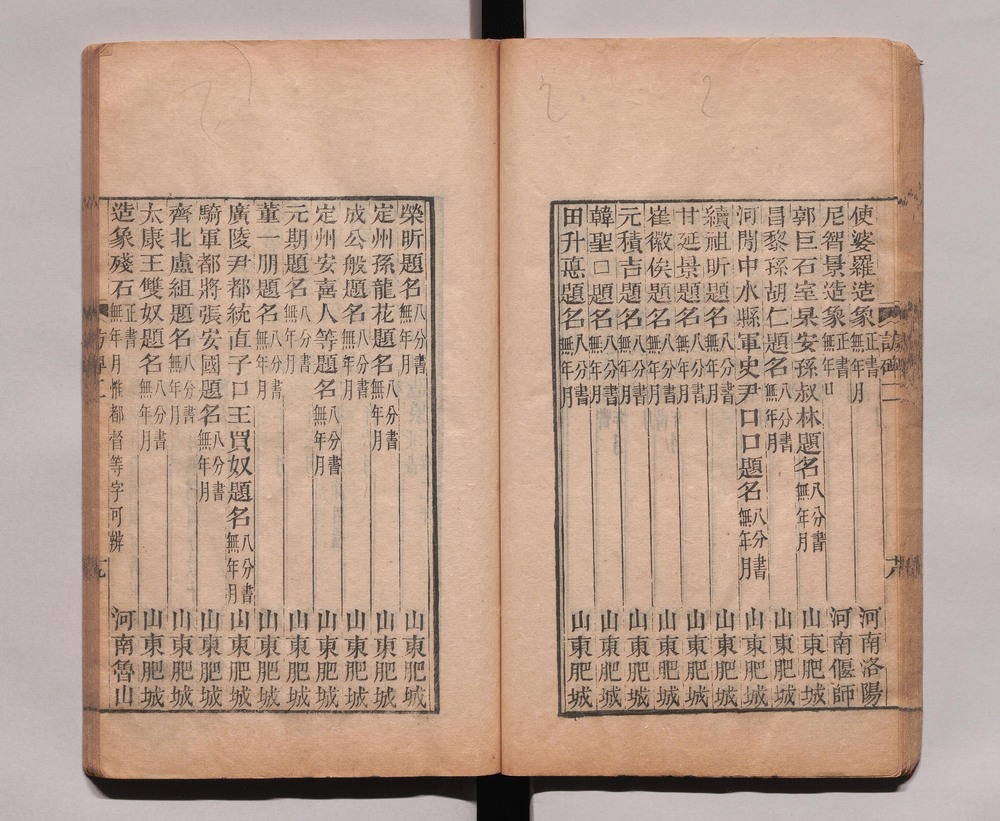 使婆羅造象正書無年月 河南洛陽
尼智景造象正書無年 河南偃師
郭巨石室杲安孫叔林題名八分書無年月 山東肥城
昌黎孫胡仁題名八分書無年月 山東肥城
河閒中水縣軍史尹口口題名八分書無年月 山東肥城
續祖昕題名八分書無年月 山東肥城
甘延景題名八分書無年月 山東肥城
崔徽俟題名八分書無年月 山東肥城
元積吉題名八分書無年月 山東肥城
韓聖口題名八分書無年月 山東肥城
田升惪題名八分書無年月 山東肥城
榮昕題名八分書無年月 山東肥城
定州孫龍花題名八分書無年月 山東肥城
成公般題名八分書無年月 山東肥城
定州安喜人等題名八分書無年月 山東肥城
元期題名八分書無年月 山東肥城
董一朋題名八分書無年月 山東肥城
廣陵尹都統直子口王買奴題名八分書無年月 山東肥城
騎軍都將張安國題名八分書無年月 山東肥城
齊北盧組題名八分書無年月 山東肥城
太康王雙奴題名八分書無年月 山東肥城
造象殘石正書無年月惟都督等字可辨 河南魯山